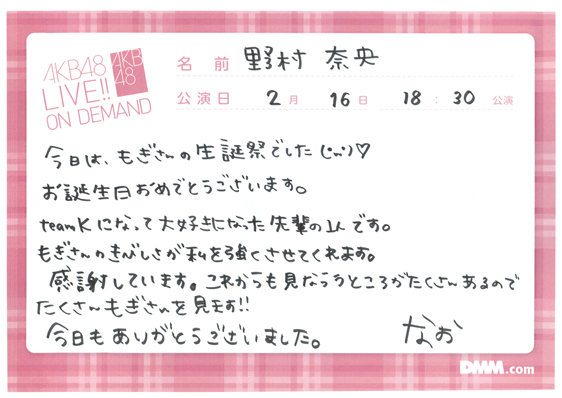 AKB48
LIVE!!
ON DEMAND
AKB
48
名前 野村 奈央
公演日 2月 16日 18:30 公演
今日は、もぎさんの生誕祭でした(˙ω˙)♡
お誕生日おめでとうございます。
teamKになって大好きになった先輩の1人です。
もぎさんのきびしさが私を強くさせてくれます。
感謝しています。これからも見ならうところがたくさんあるので
たくさんもぎさんを見ます!!
今日もありがとうございました。
なお
DMM.com